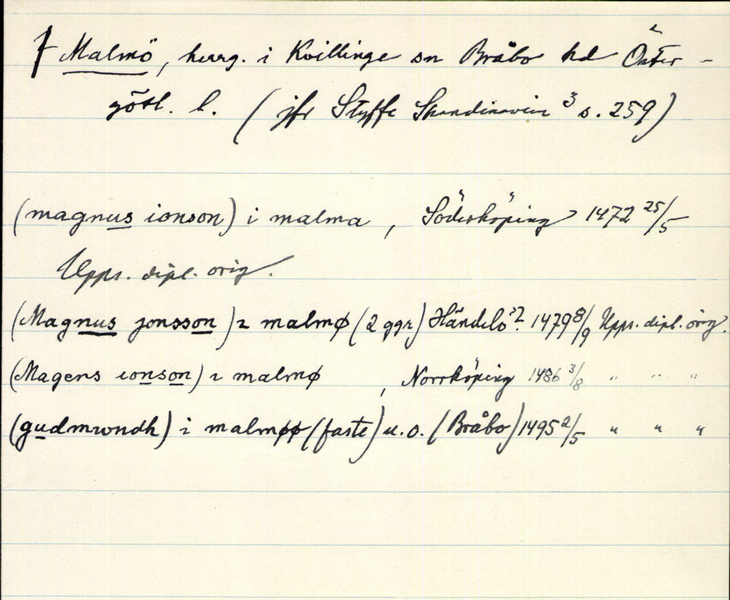 † Malmö, herrg. i Kvillinge sn Bråbo hd Öster-
götl. l. (jfr Styffe Skandinavien ³ s. 259)
(magnus ionson) i malma, Söderköping 1472 25/5
Upps. dipl. orig.
(Magnus jonsson) i malmø (2 ggr) Händelö 1479 8/9 Upps. dipl. orig.
(Magens ionson) i malmø, Norrköping 1486 3/8 " " "
(gudmwndh) i malmøø (faste) u.o. (Bråbo) 1495 2/5 " " "